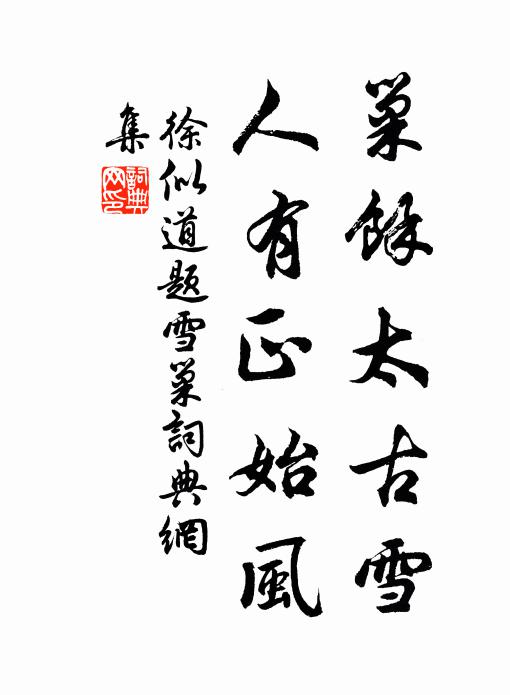 巢餘太古雪
人有正始風
徐似道題雪巢詞典網
集
詞典
网印